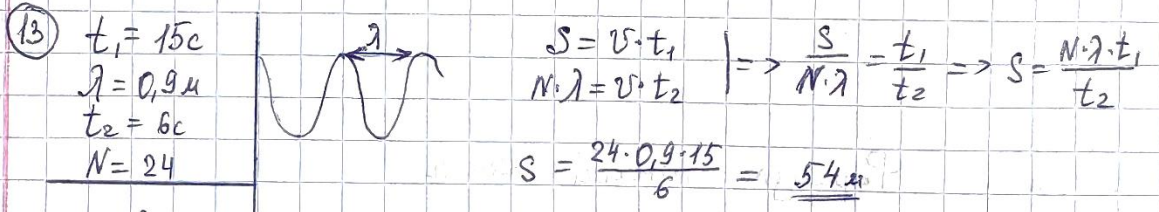 13 t₁ = 15с
λ = 0,9м
t₂ = 6с
N = 24
λ
S = v·t₁
N·λ = v·t₂
=> S/(N·λ) = t₁/t₂ => S = (N·λ·t₁)/t₂
S = (24·0,9·15)/6 = 54м